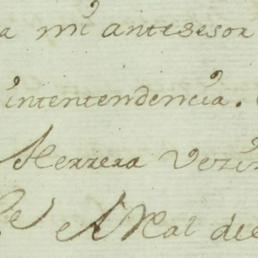 a mi antesesor
intentendencia.
Herrera Vezi
el Real de